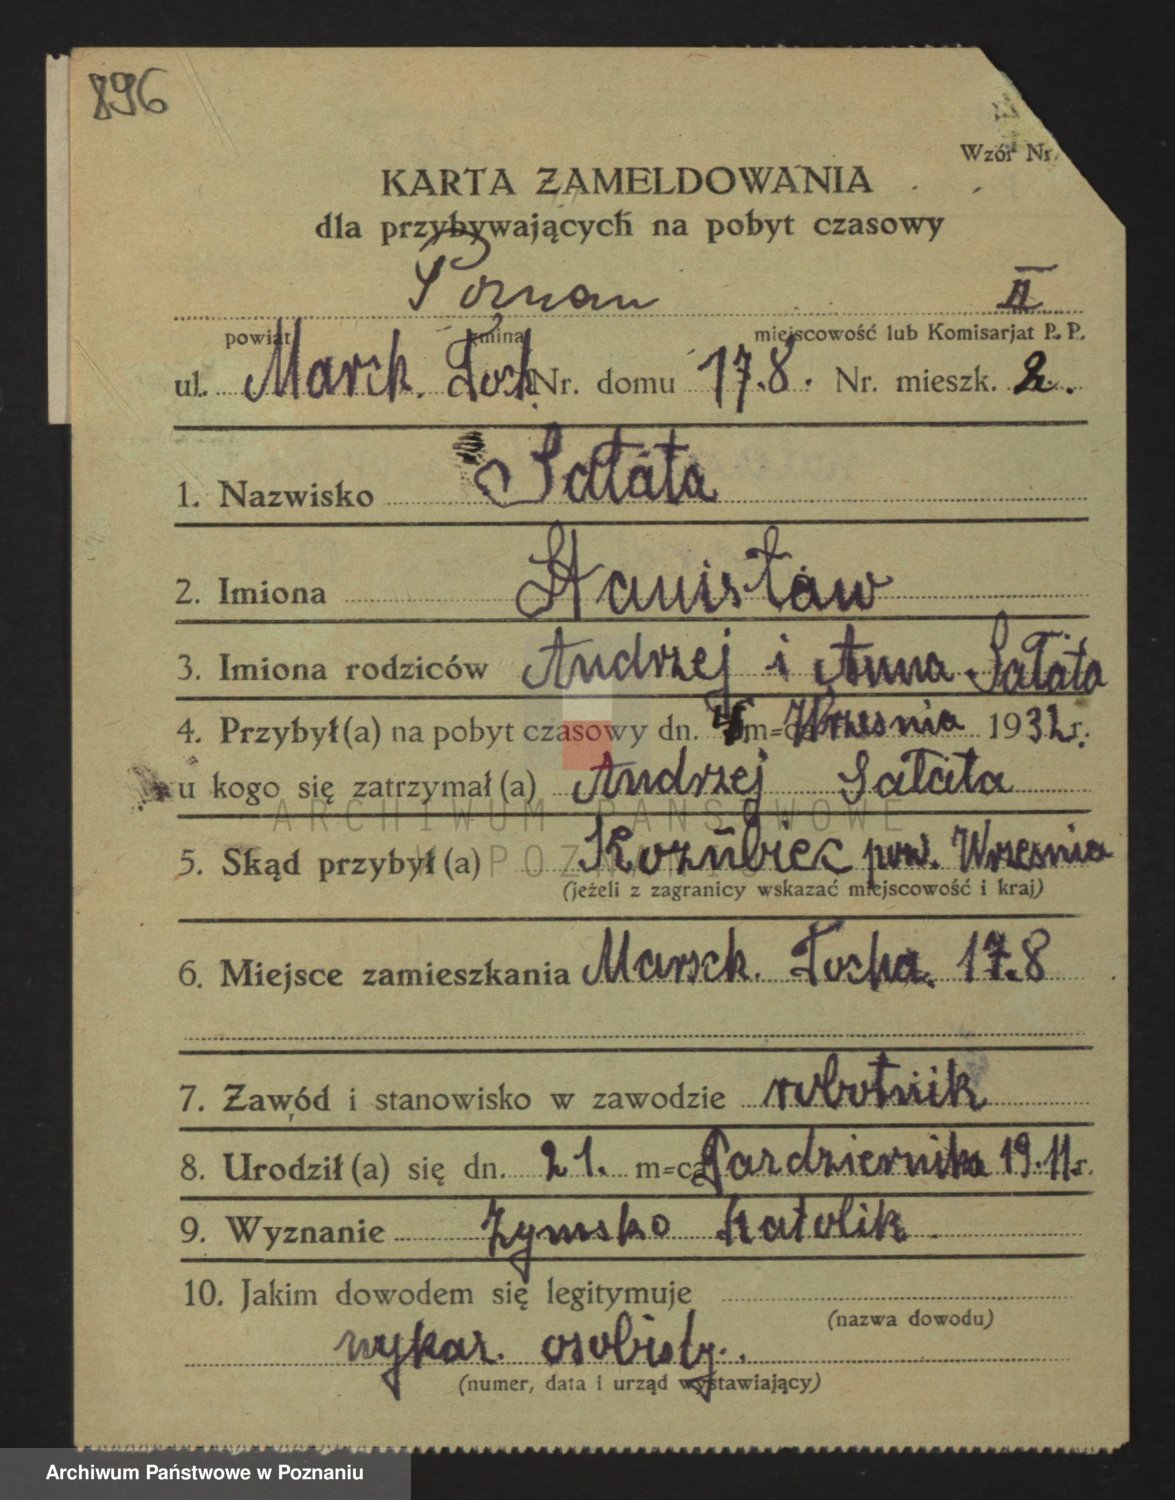 896
Wzór Nr.
KARTA ZAMELDOWANIA
dla przybywających na pobyt czasowy
Poznan II
powiat gmina miejscowość lub Komisarjat P. P.
ul. Marck. Foch. Nr. domu 17.8. Nr. mieszk. 2.
1. Nazwisko Sałata
2. Imiona Stanisław
3. Imiona rodziców Andrzej i Anna Sałata
4. Przybył(a) na pobyt czasowy dn. m=ca Wrzesnia 1932 r.
u kogo się zatrzymał(a) Andrzej Sałata
5. Skąd przybył(a) Kozubiec pow. Wrzesnia
(jeżeli z zagranicy wskazać miejscowość i kraj)
6. Miejsce zamieszkania Marsck. Focha. 17.8
7. Zawód i stanowisko w zawodzie robotnik
8. Urodził(a) się dn. 21. m=ca Pazdziernika 19.11 r.
9. Wyznanie rzymsko katolik.
10. Jakim dowodem się legitymuje
(nazwa dowodu)
wykaz. osobisty.
(numer, data i urząd wystawiający)
ARCHIWUM PAŃSTWOWE
W POZNANIU
Archiwum Państwowe w Poznaniu